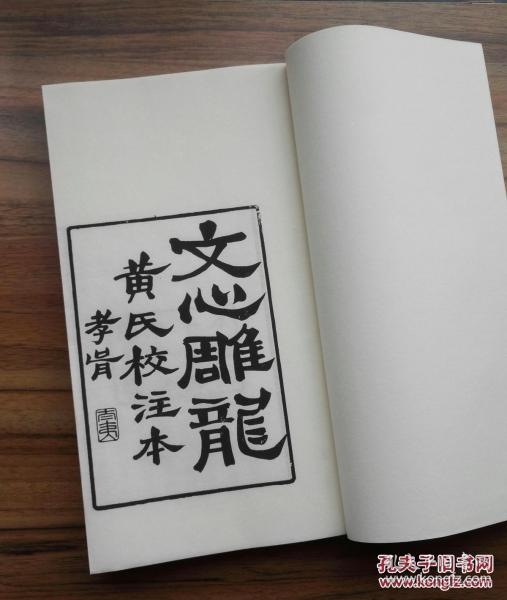 文心雕龍
黄氏校注本
孝胥
太夷
孔夫子旧书网
www.kongfz.com